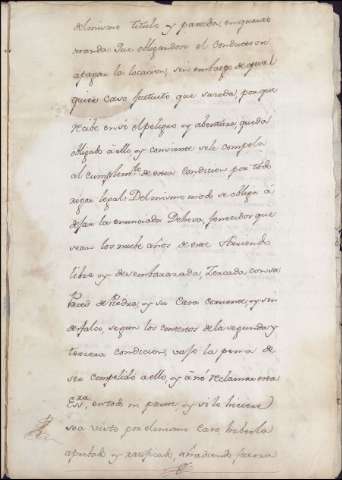 del mismo titulo y parada, en quanto
manda. Que obligandose el Conductor en
apagar la locacion, sin embargo de qual
quier Caso fortuito que suceda, porque
recibe en sí el peligro y abentura, queda
obligado à ello, y consiente se le compela
al cumplimto. de esta Condicion por todo
rigor legal. Del mismo modo se obliga á
dejar la enunciada Dehesa, fenecidos que
sean los nuebe años de este Arriendo
libre y desembarazada, Zercada con su
Pared de Piedra, y su Casa corriente, y sin
desfalco, segun los contextos de la segunda y
tercera condicion, vajo la pena de
ser compelido à ello, y à no reclamar esta
Esxa., en todo ni parte, y si lo hiciere
sea visto por el mismo Caso haberla
aprobado y ratificado, añadiendo fuerza